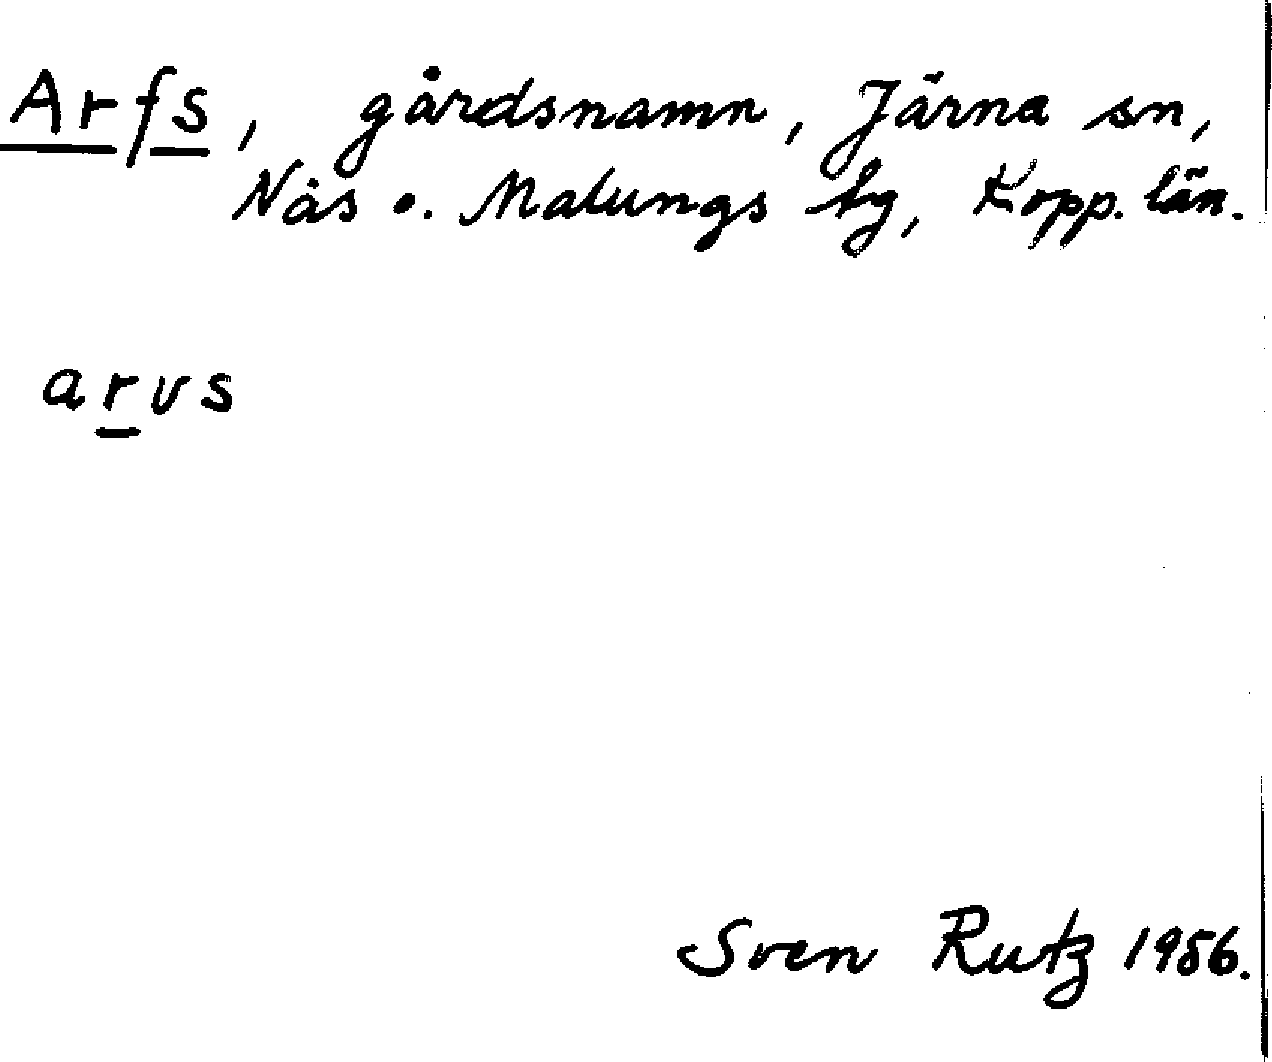 Arfs, gårdsnamn, Järna sn,
Nås o. Malungs tg, Kopp. län.
arvs
Sven Rutz 1956.